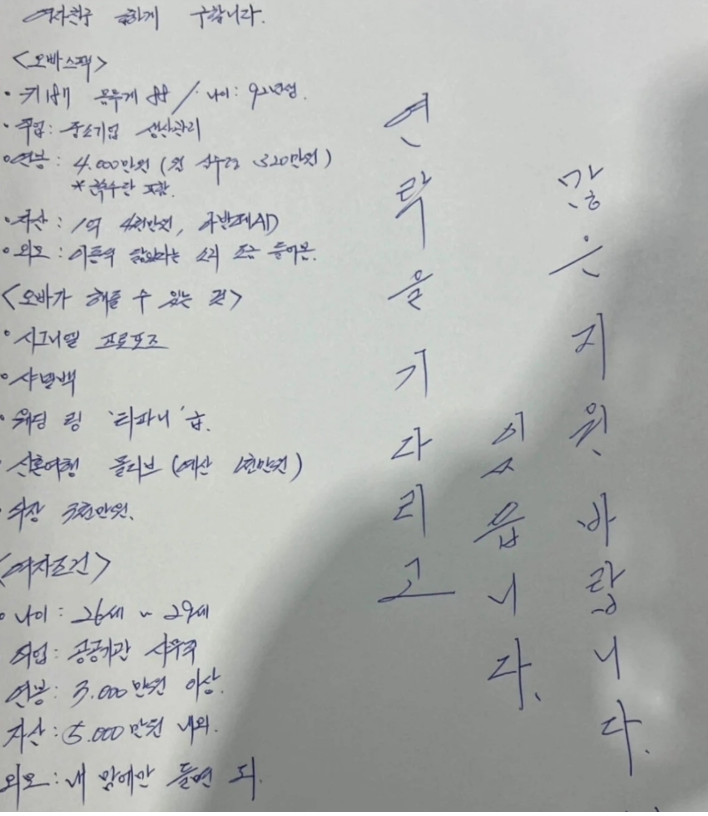 여자친구 급하게 구합니다.
<오빠스펙>
• 키 187 몸무게 88 / 나이: 92년생.
• 직업: 중소기업 생산관리
• 연봉: 4.000만원 (월 실수령 320만원)
* 특수리 포함.
• 자산: 1억 4천만원, 국산 SEAD
• 외모: 이준혁 닮았다는 소리 조금 들어봄.
<오빠가 해줄 수 있는 것>
• 시그니엘 프로포즈
• 샤넬백
• 웨딩 링 '티파니' 급.
• 신혼여행 몰디브 (예산 천만원)
• 식장 3천만원.
<여자조건>
• 나이: 26세 ~ 29세
직업: 공공기관 사무직
연봉: 3.000만원 이상.
자산: 5.000만원 내외.
외모: 내 맘에만 들면 되.
연락을 기다리고
있읍니다.
많은 지원 바랍니다.